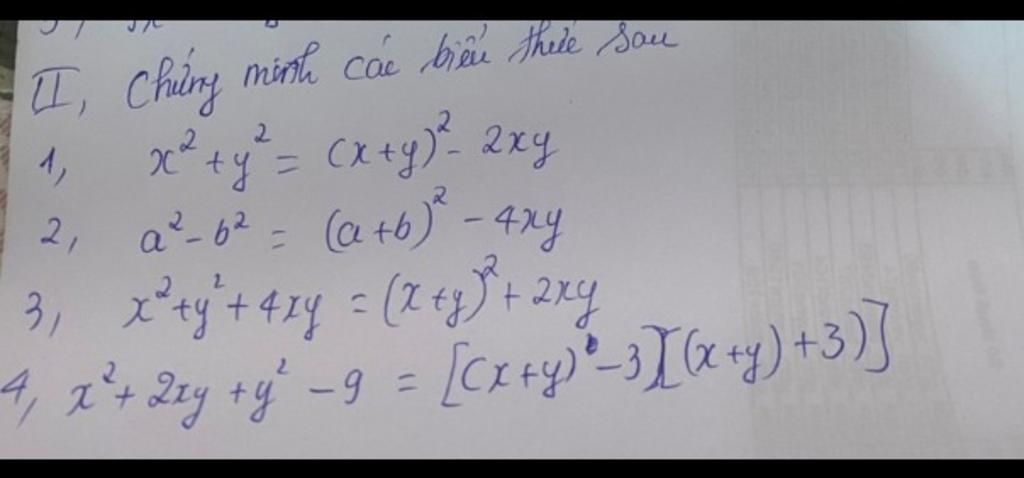 II, Chứng minh các biểu thức sau
1, x² + y² = (x+y)² - 2xy
2, a² - b² = (a+b)² - 4xy
3, x² + y² + 4xy = (x+y)² + 2xy
4, x² + 2xy + y² - 9 = [(x+y) - 3][(x+y) + 3)]